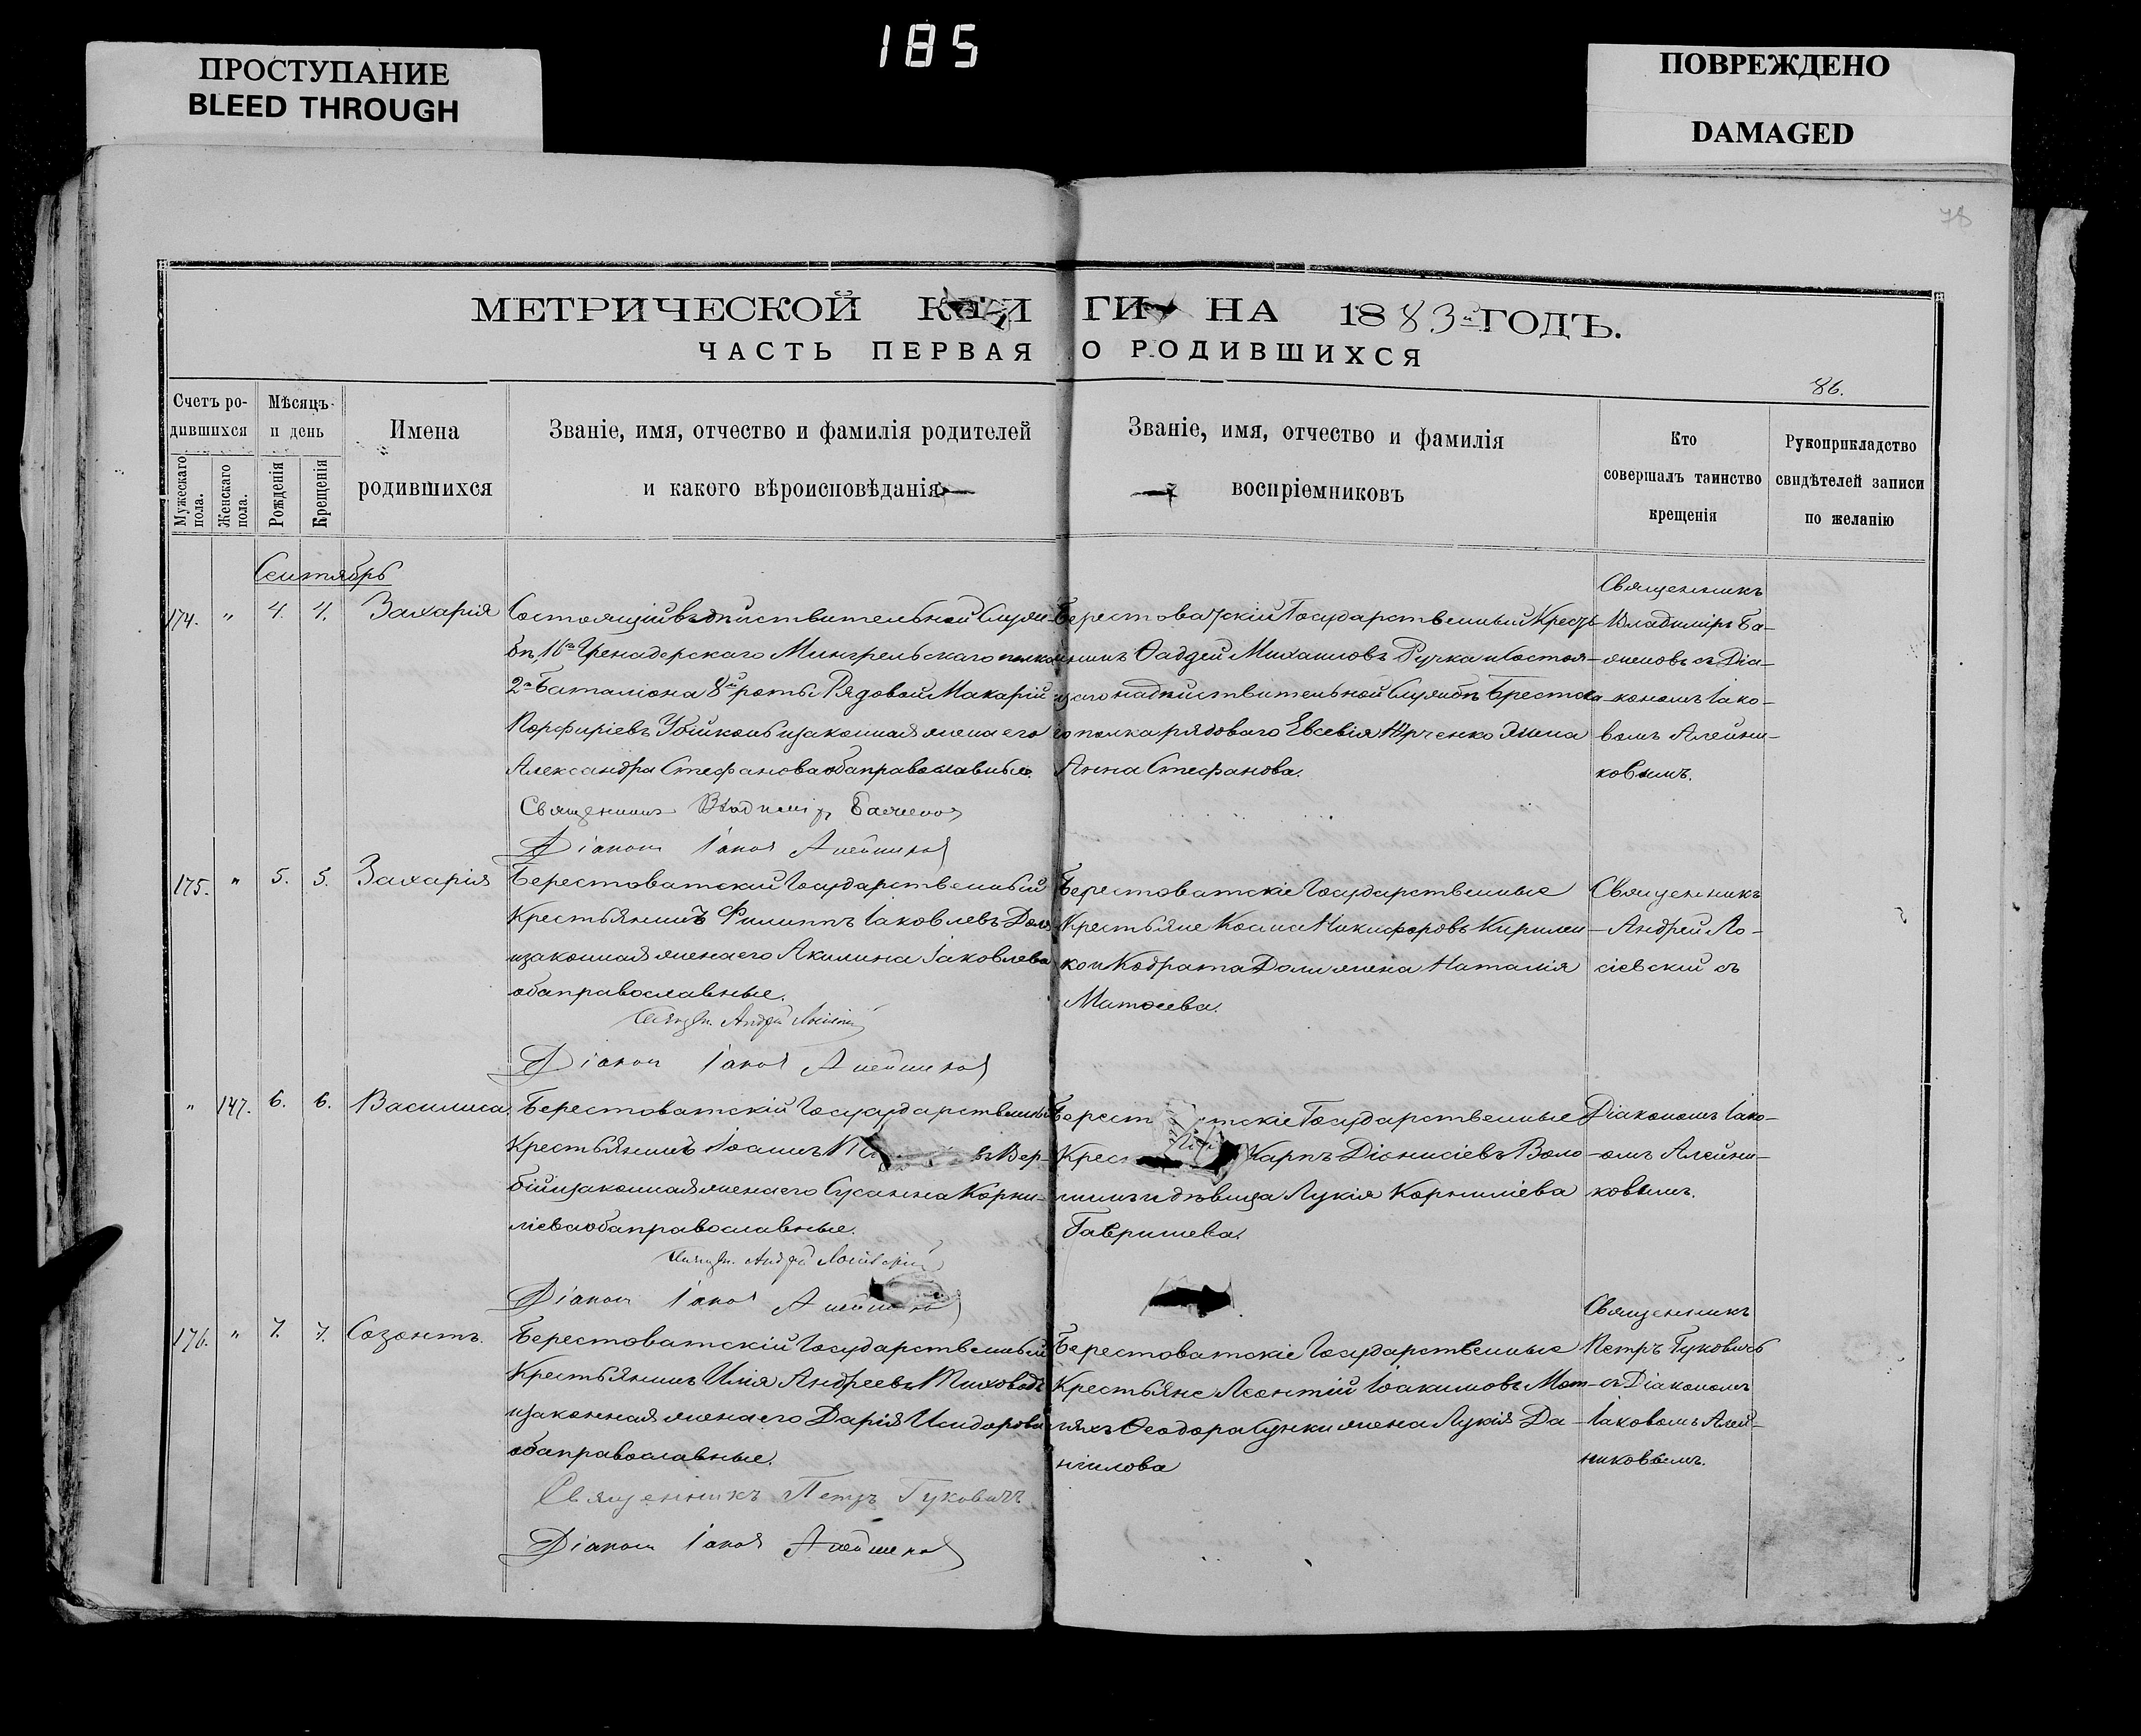 185
ПРОСТУПАНИЕ
BLEED THROUGH
ПОВРЕЖДЕНО
DAMAGED
78
МЕТРИЧЕСКОЙ КНИГИ НА 1883 ГОДЪ.
ЧАСТЬ ПЕРВАЯ О РОДИВШИХСЯ
86.
Счетъ родившихся
Мужескаго пола.
Женскаго пола.
Мѣсяцъ и день
Рожденія
Крещенія
Имена
родившихся
Званіе, имя, отчество и фамилія родителей
и какого вѣроисповѣданія
Званіе, имя, отчество и фамилія
воспріемниковъ
Кто
совершалъ таинство
крещенія
Рукоприкладство
свидѣтелей записи
по желанію
Сентябрь
174. " 4. 4. Захарія
Состоящій въ дѣйствительной служ-
бѣ, 16го Гренадерскаго Мингрельскаго полка
2го Баталіона 8й роты Рядовой Макарій
Порфиріевъ и законная жена его
Александра Стефанова оба православные.
Священникъ Владиміръ Баженовъ
Діаконъ Іаковъ Алейниковъ
Берестоватскій Государственный Кресть-
янинъ Ѳаддей Михаиловъ Ручка и Состоя-
щаго на дѣйствительной службѣ Брестска-
го полка рядоваго Евсевія жена
Анна Стефанова.
Священникъ
Владиміръ Ба-
женовъ съ Діа-
кономъ Іако-
вомъ Алейни-
ковымъ.
175. " 5. 5. Захарія
Берестоватскій Государственный
Крестьянинъ Филиппъ Іаковлевъ Доля
и законная жена его Акилина Іаковлева
оба православные.
Священ. Андрей Лосіевскій
Діаконъ Іаковъ Алейниковъ
Берестоватскіе Государственные
Крестьяне Косма Никифоровъ Кирилен-
ко и Кодрата Доли жена Наталія
Матѳеева.
Священникъ
Андрей Ло-
сіевскій съ
" 147. 6. 6. Василиса.
Берестоватскій Государственный
Крестьянинъ Іоаннъ въ Вер-
бій и законная жена его Сусанна Корни-
ліева оба православные.
Священ. Андрей Лосіевскій
Діаконъ Іаковъ Алейниковъ
Берест тскіе Государственные
Крес Карпъ Діонисіевъ Воло-
шинъ и дѣвица Лукія Корниліева
Гавришева.
Діакономъ Іако-
вомъ Алейни-
ковымъ.
176. " 7. 7. Созонтъ.
Берестоватскій Государственный
Крестьянинъ Илія Андреевъ Тиховодъ
и законная жена его Дарія Исидорова
оба православные.
Священникъ Петръ Гуковичъ
Діаконъ Іаковъ Алейниковъ
Берестоватскіе Государственные
Крестьяне Леонтій Іоакимовъ
и Ѳеодора жена Лукія Да-
нілова
Священникъ
Петръ Гуковичъ
съ Діакономъ
Іаковомъ Алей-
никовымъ.